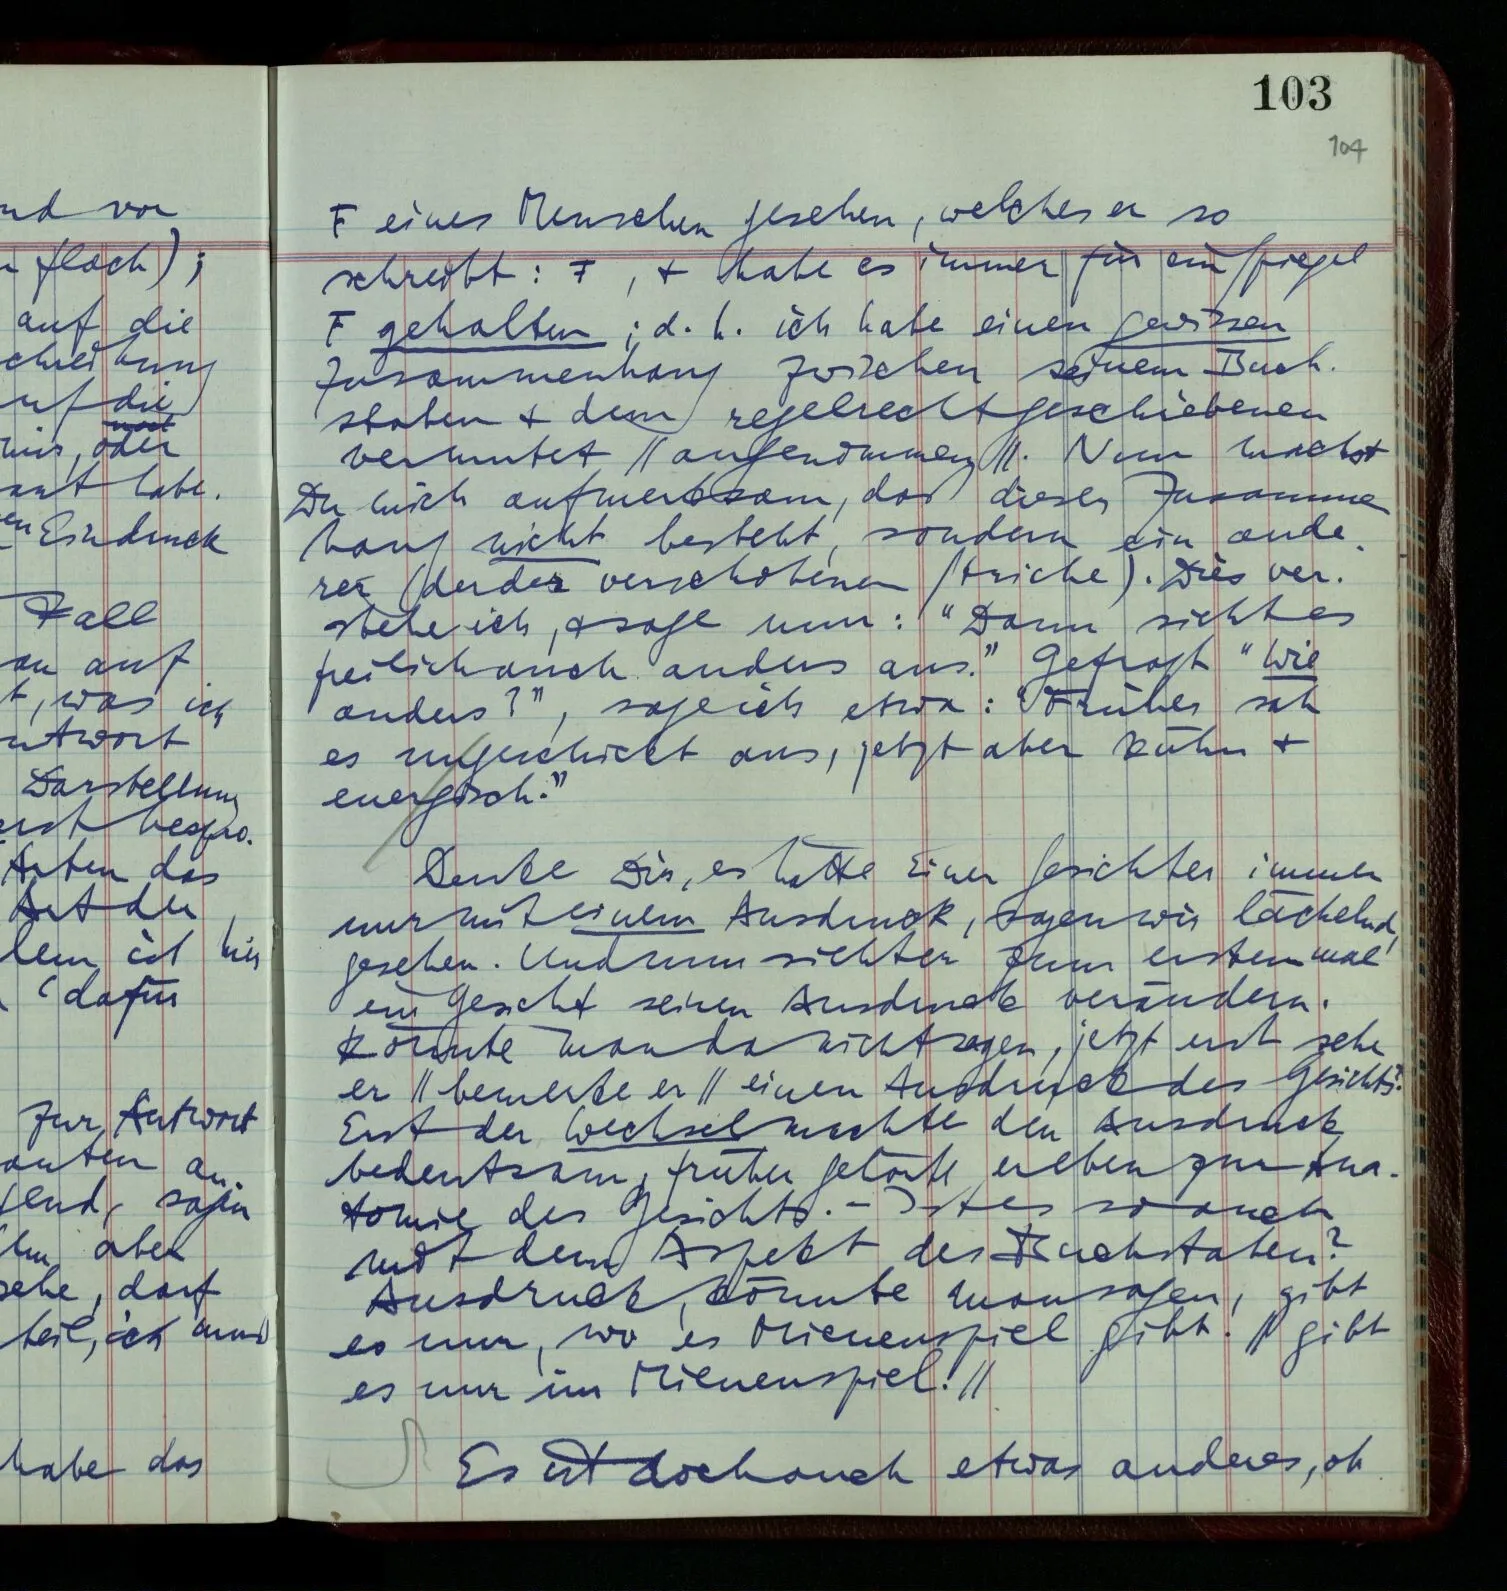 103
104
nd von
flach);
auf die
schreibung
auf die
mir, oder
ant habe.
Eindruck
Fall
an auf
t, was ich
Antwort
Darstellung
erst bespro-
Arten das
Art der
dem ist hier
"dafür
zur Antwort
an
end, sagen
aber
sehe, darf
teil, ich
habe das
F eines Menschen gesehen, welches er so
schreibt: F, & habe es immer für ein Spiegel
F gehalten; d.h. ich habe einen gewissen
Zusammenhang zwischen seinem Buch-
staben & dem regelrecht geschriebenen
vermutet // angenommen //. Nun machst
Du mich aufmerksam, daß dieser Zusammen
hang nicht besteht, sondern ein ande-
rer (der der verschobenen Striche). Dies ver-
stehe ich, & sage nun: "Dann sieht es
freilich auch anders aus." Gefragt "wie
anders?", sage ich etwa: "Früher sah
es ungeschickt aus, jetzt aber kühn &
energisch."
Denke Dir, es hätte Einer Gesichter immer
nur mit einem Ausdruck, sagen wir lächelnd,
gesehen. Und nun sieht er zum erstenmal
ein Gesicht seinen Ausdruck verändern.
Könnte man da nicht sagen, jetzt erst sehe
er // bemerke er // einen Ausdruck des Gesichts?
Erst der Wechsel machte den Ausdruck
bedeutsam, früher gehörte er eben zur Ana-
tomie des Gesichts. – Ist es so auch
mit dem Aspekt des Buchstaben?
Ausdruck, könnte man sagen, gibt
es nur, wo es Mienenspiel gibt. // gibt
es nur im Mienenspiel. //
Es ist doch auch etwas anderes, ob